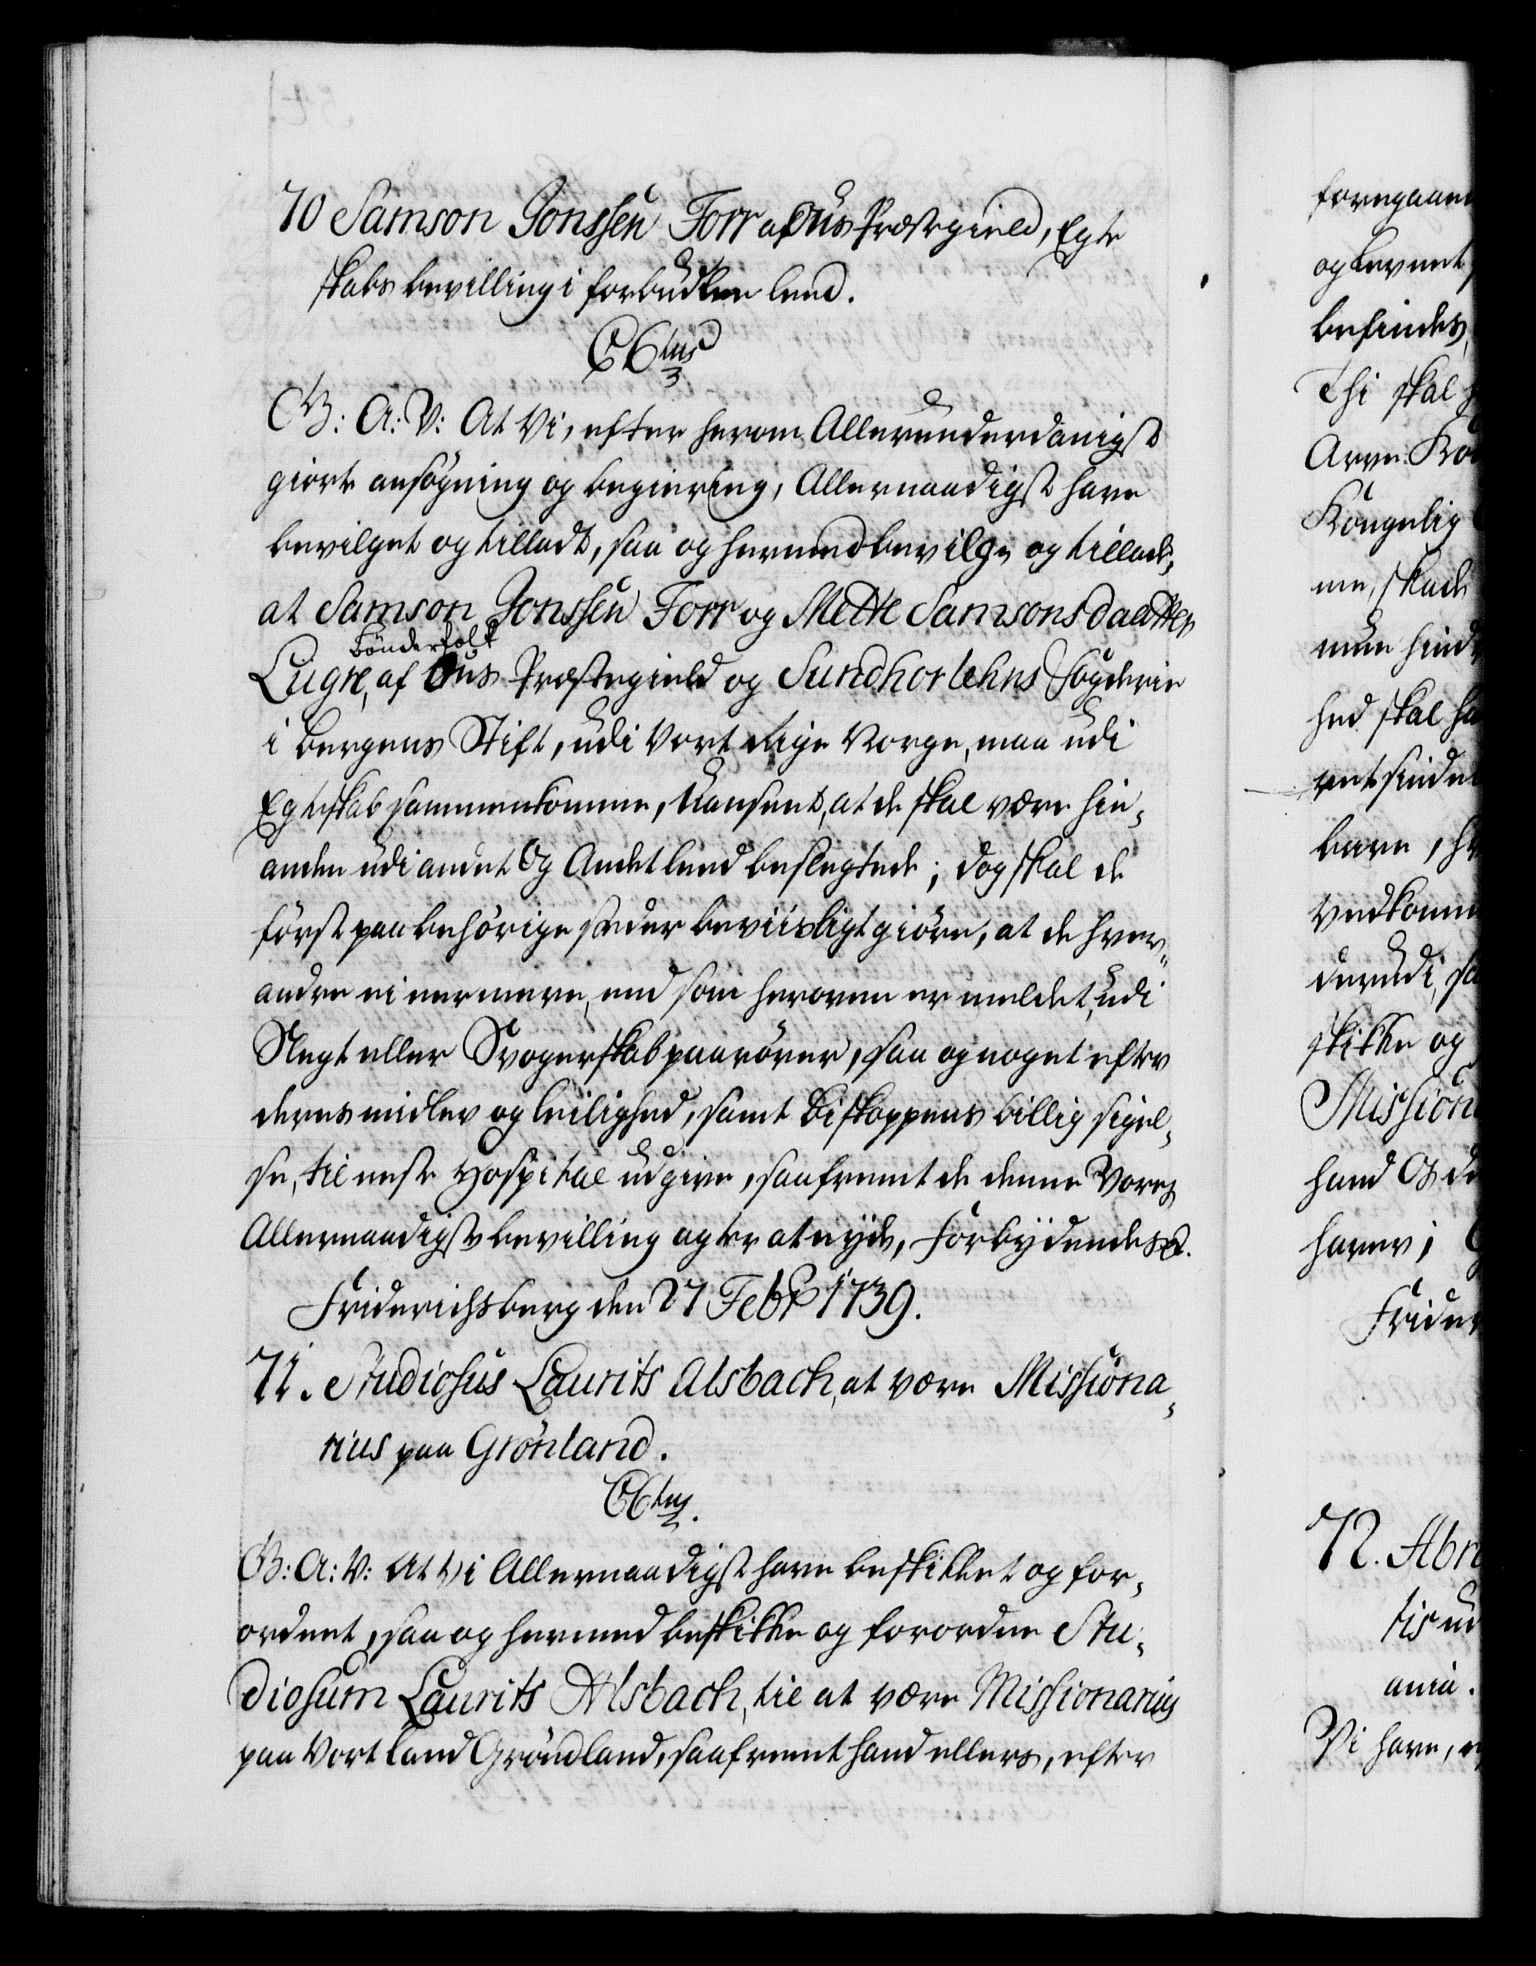 70 Samson Jonssen Forr af Ous Præstegield, Egte
skabs bevilling i forbudene leed.
C 6tus
G: A: V: At Vi, efter herom Allerunderdanigst
giorte ansøgning og begiering, Allernaadigst have
bevilget og tilladt, saa og hermed bevilge og tillade,
at Samson Jonssen Forr og Mette Samsonsdaatter
Bønderfolk
Lugre, af Ous Præstegield og Sundhorlehns Fogderie
i Bergens Stift, udi Vort Rige Norge, maa udi
Egteskab sammenkomme, Uanseet, at de skal være hin-
anden udi andet Og Andet leed beslegtede; dog skal de
først paa behørige stæder beviisligt giøre, at de hver-
andre ei nermere, end som heroven er meldet, udi
Slegt eller Svogerskab paarører, saa og noget efter
deres midler og leilighed, samt Biskoppens billig sigel-
se, til neste Hospital udgive, saafremt de denne Vores
Allernaadigste bevilling agter at nyde, Forbydendes &.
Friderichsberg den 27 Febr 1739.
71. Studiosus Laurits Alsbach, at være Missiona-
rius paa Grønland.
C6tus.
G: A: V: At Vi Allernaadigst have beskikket og for-
ordnet, saa og hermed beskikke og forordne Stu-
diosum Laurits Alsbach, til at være Missionarius
paa Vort land Grønland, saafremt hand ellers, efter
foregaaen
og levnet
befindes,
Thi skal
Arve Kon
Kongelig
me, skade
mue hind
hed skal ha
retsindet
bære, h
Vedkomme
derudi, sa
skikke og
Mission
hand Os de
haver;
Frider
72. Abr
tis ud
ania.
Vi have, e